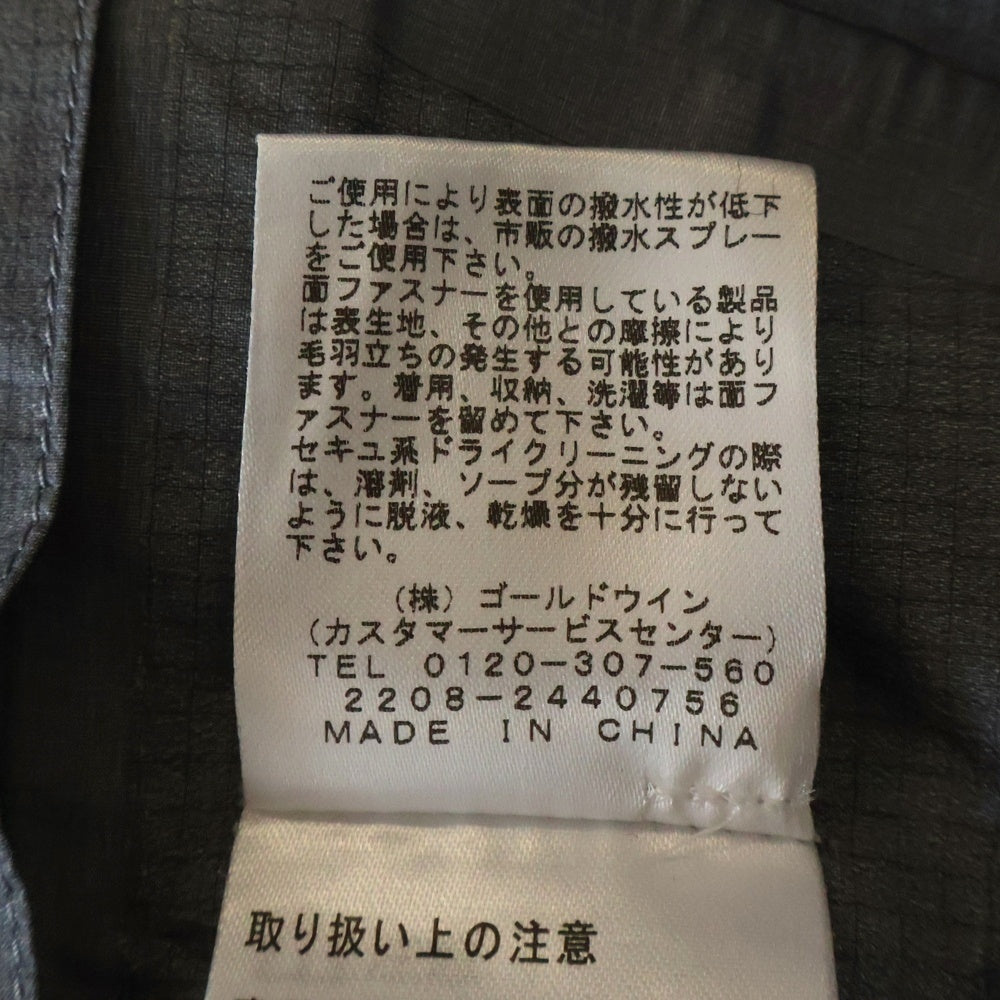 ご使用により表面の撥水性が低下
した場合は、市販の撥水スプレー
をご使用下さい。
面ファスナーを使用している製品
は表生地、その他との摩擦により
毛羽立ちの発生する可能性があり
ます。着用、収納、洗濯等は面フ
ァスナーを留めて下さい。
セキユ系ドライクリーニングの際
は、溶剤、ソープ分が残留しない
ように脱液、乾燥を十分に行って
下さい。
(株)ゴールドウイン
(カスタマーサービスセンター)
TEL 0120-307-560
2208-2440756
MADE IN CHINA
取り扱い上の注意